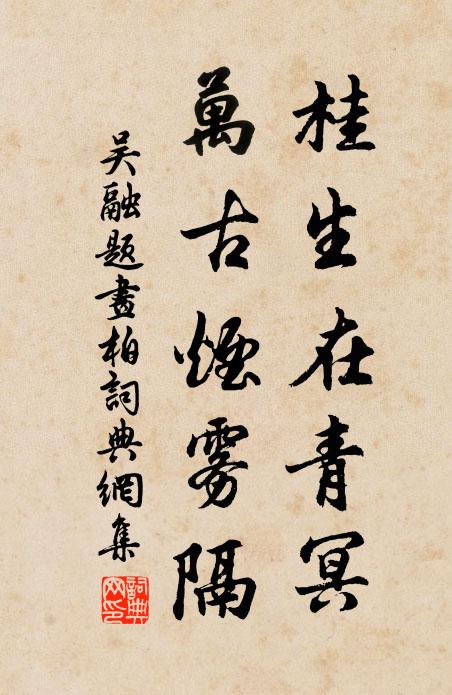 桂生在青冥
萬古煙雾隔
吴融題畫柏詞典網集
詞典網印